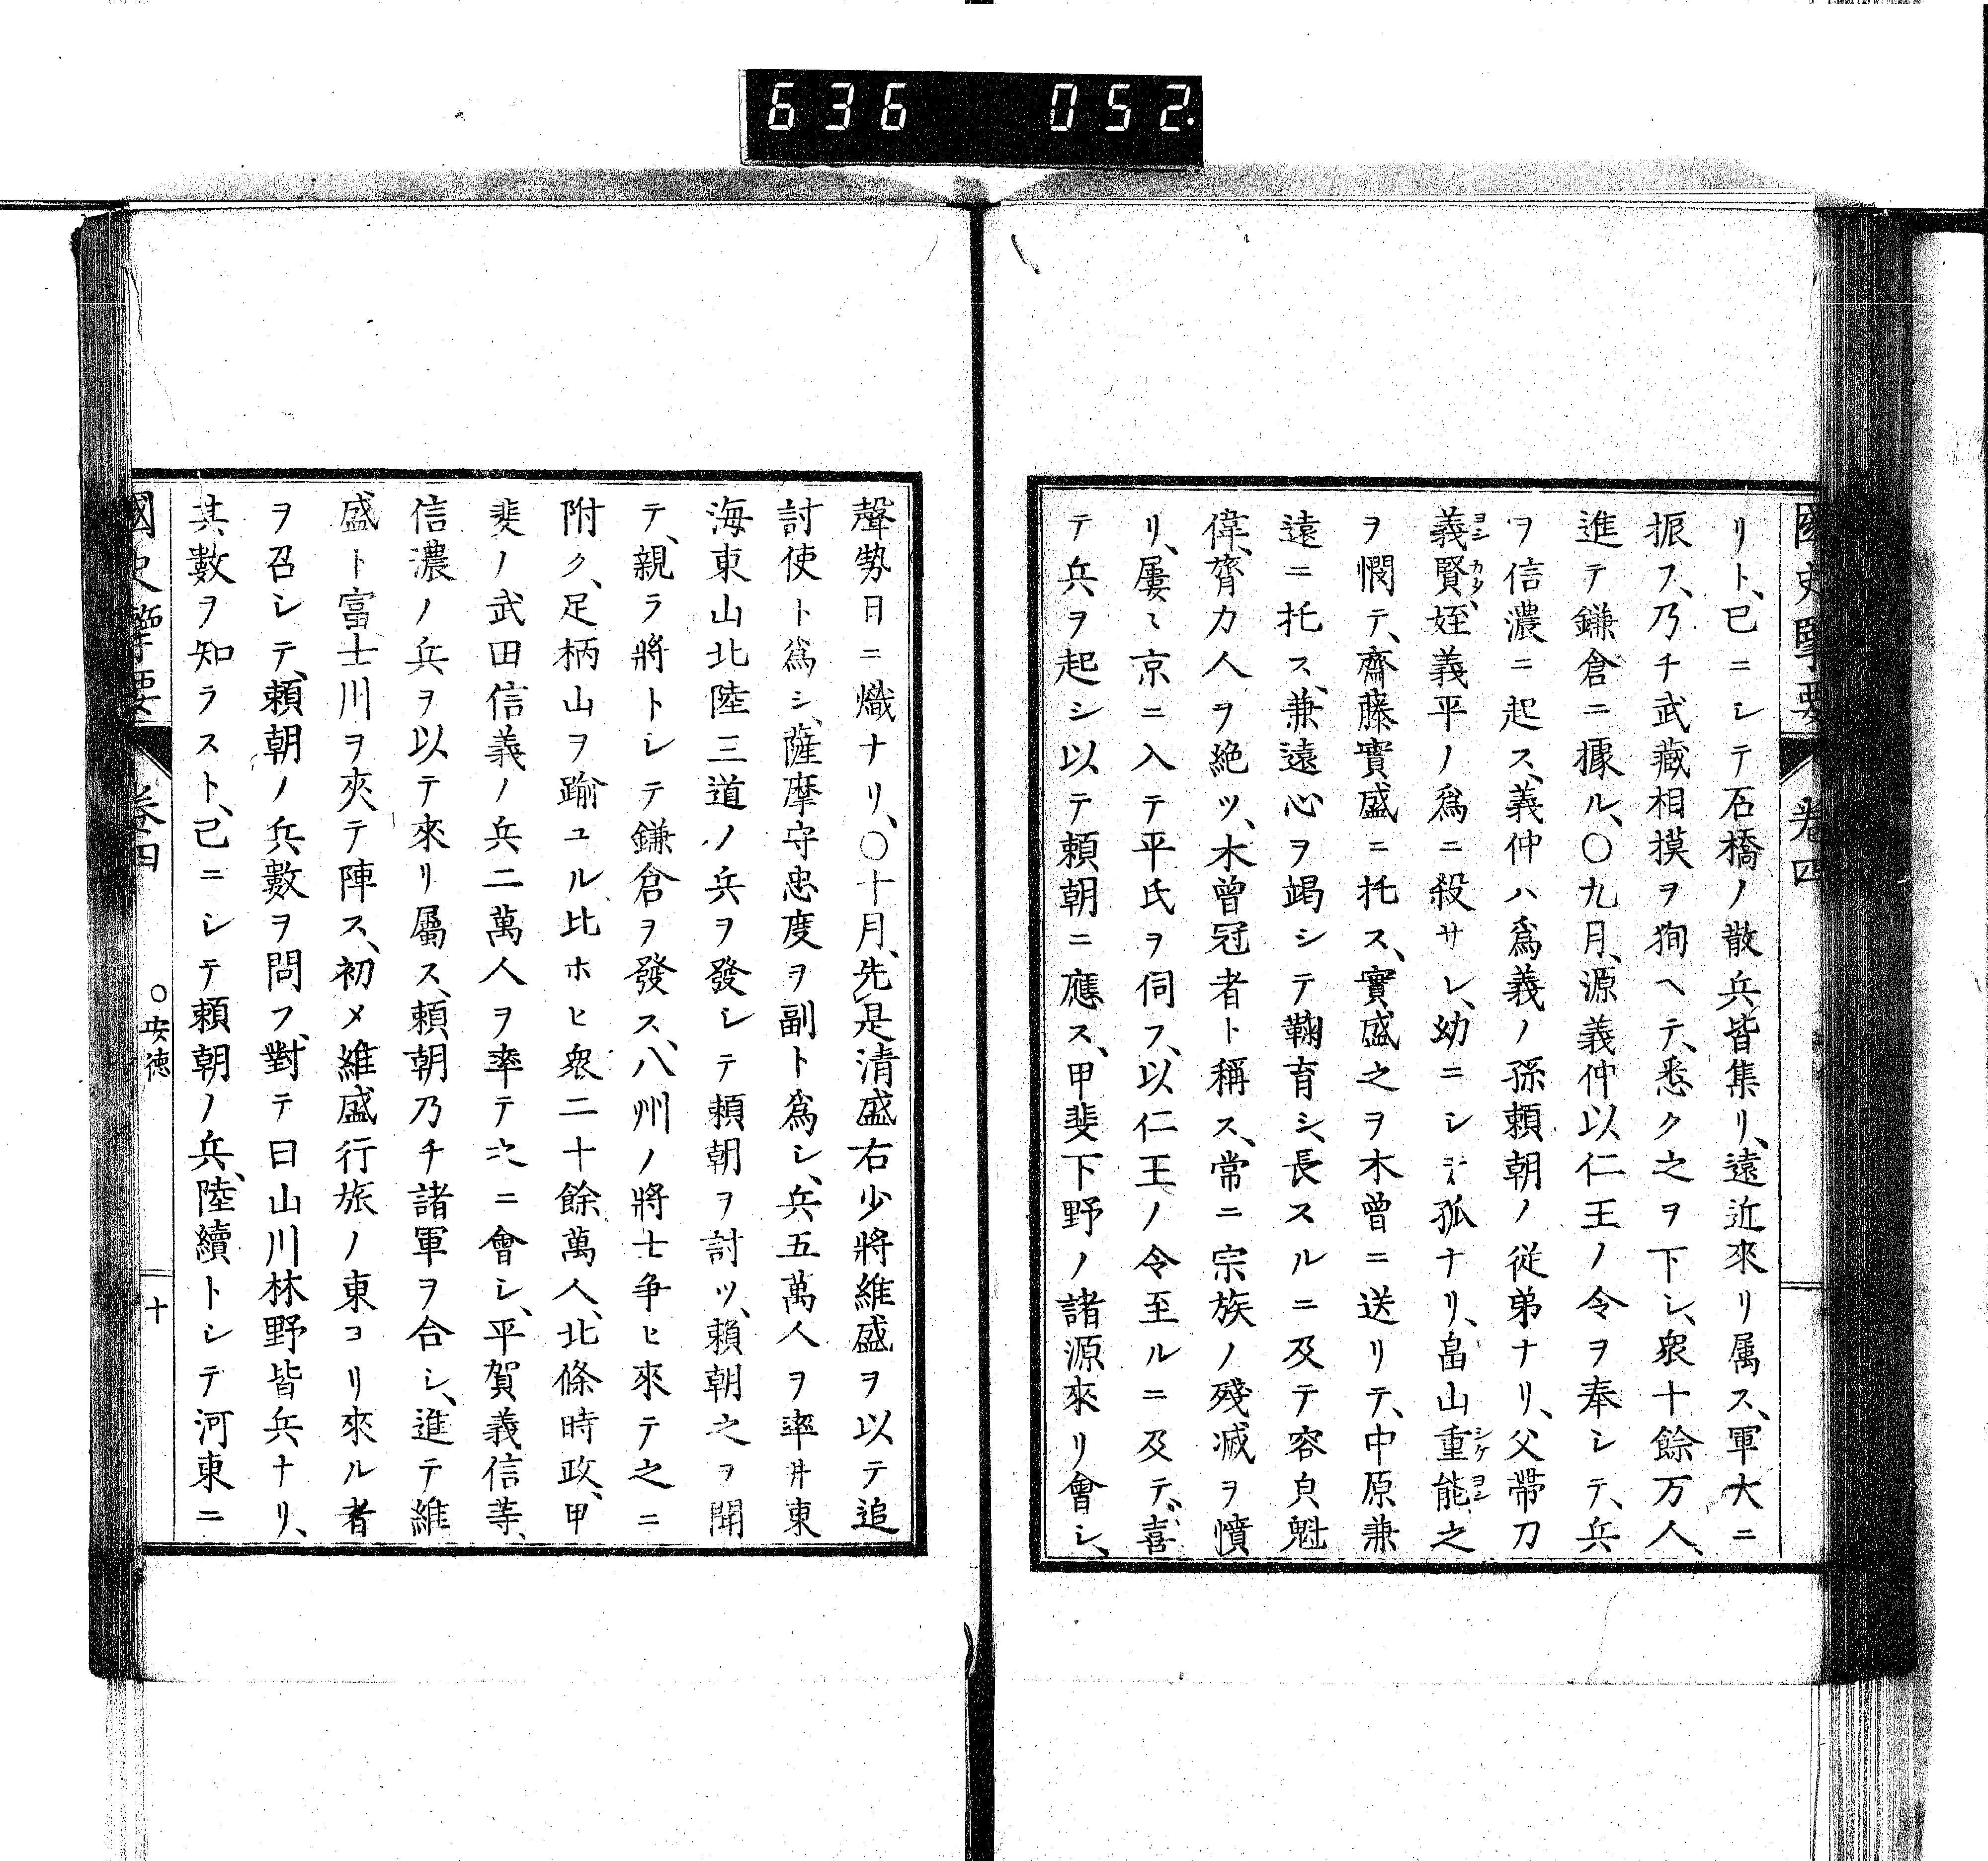 636 052
國史擥要 卷四
リト、已ニシテ石橋ノ散兵皆集リ、遠近來リ属ス、軍大ニ
振フ、乃チ武藏相摸ヲ徇ヘテ、悉ク之ヲ下シ、衆十餘万人、
進テ鎌倉ニ據ル、〇九月、源義仲以仁王ノ令ヲ奉シテ、兵
ヲ信濃ニ起ス、義仲ハ爲義ノ孫頼朝ノ從弟ナリ、父帶刀
義賢、姪義平ノ爲ニ殺サレ、幼ニシテ孤ナリ、畠山重能之
ヲ憫テ、齋藤實盛ニ托ス、實盛之ヲ木曾ニ送リテ、中原兼
遠ニ托ス、兼遠心ヲ竭シテ鞠育シ、長スルニ及テ容皃魁
偉、膂力人ヲ絶ツ、木曾冠者ト稱ス、常ニ宗族ノ殘滅ヲ憤
リ、屢〻京ニ入テ平氏ヲ伺フ、以仁王ノ令至ルニ及デ、喜
テ兵ヲ起シ以テ頼朝ニ應ス、甲斐下野ノ諸源來リ會シ、
聲勢日ニ熾ナリ、〇十月、先是清盛右少將維盛ヲ以テ追
討使ト爲シ、薩摩守忠度ヲ副ト爲シ、兵五萬人ヲ率井東
海東山北陸三道ノ兵ヲ發シテ頼朝ヲ討ツ、頼朝之ヲ聞
テ、親ラ將トシテ鎌倉ヲ發ス、八州ノ將士争ヒ來テ之ニ
附ク、足柄山ヲ踰ユル比ホヒ衆二十餘萬人、北條時政、甲
斐ノ武田信義ノ兵二萬人ヲ率テ次ニ會シ、平賀義信等、
信濃ノ兵ヲ以テ來リ屬ス、頼朝乃チ諸軍ヲ合シ、進テ維
盛ト富士川ヲ夾テ陣ス、初メ維盛行旅ノ東ヨリ來ル者
ヲ召シテ、頼朝ノ兵數ヲ問フ、對テ曰山川林野皆兵ナリ、
其數ヲ知ラスト、已ニシテ頼朝ノ兵、陸續トシテ河東ニ
國史擥要 卷四 〇安德 十